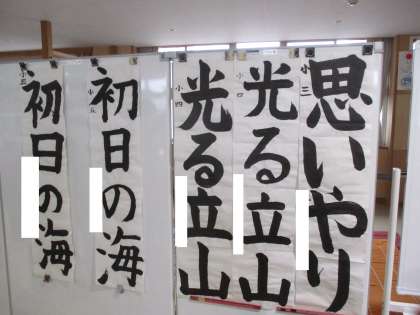 小三
思いやり
小四
光る立山
小四
光る立山
小五
初日の海
小五
初日の海